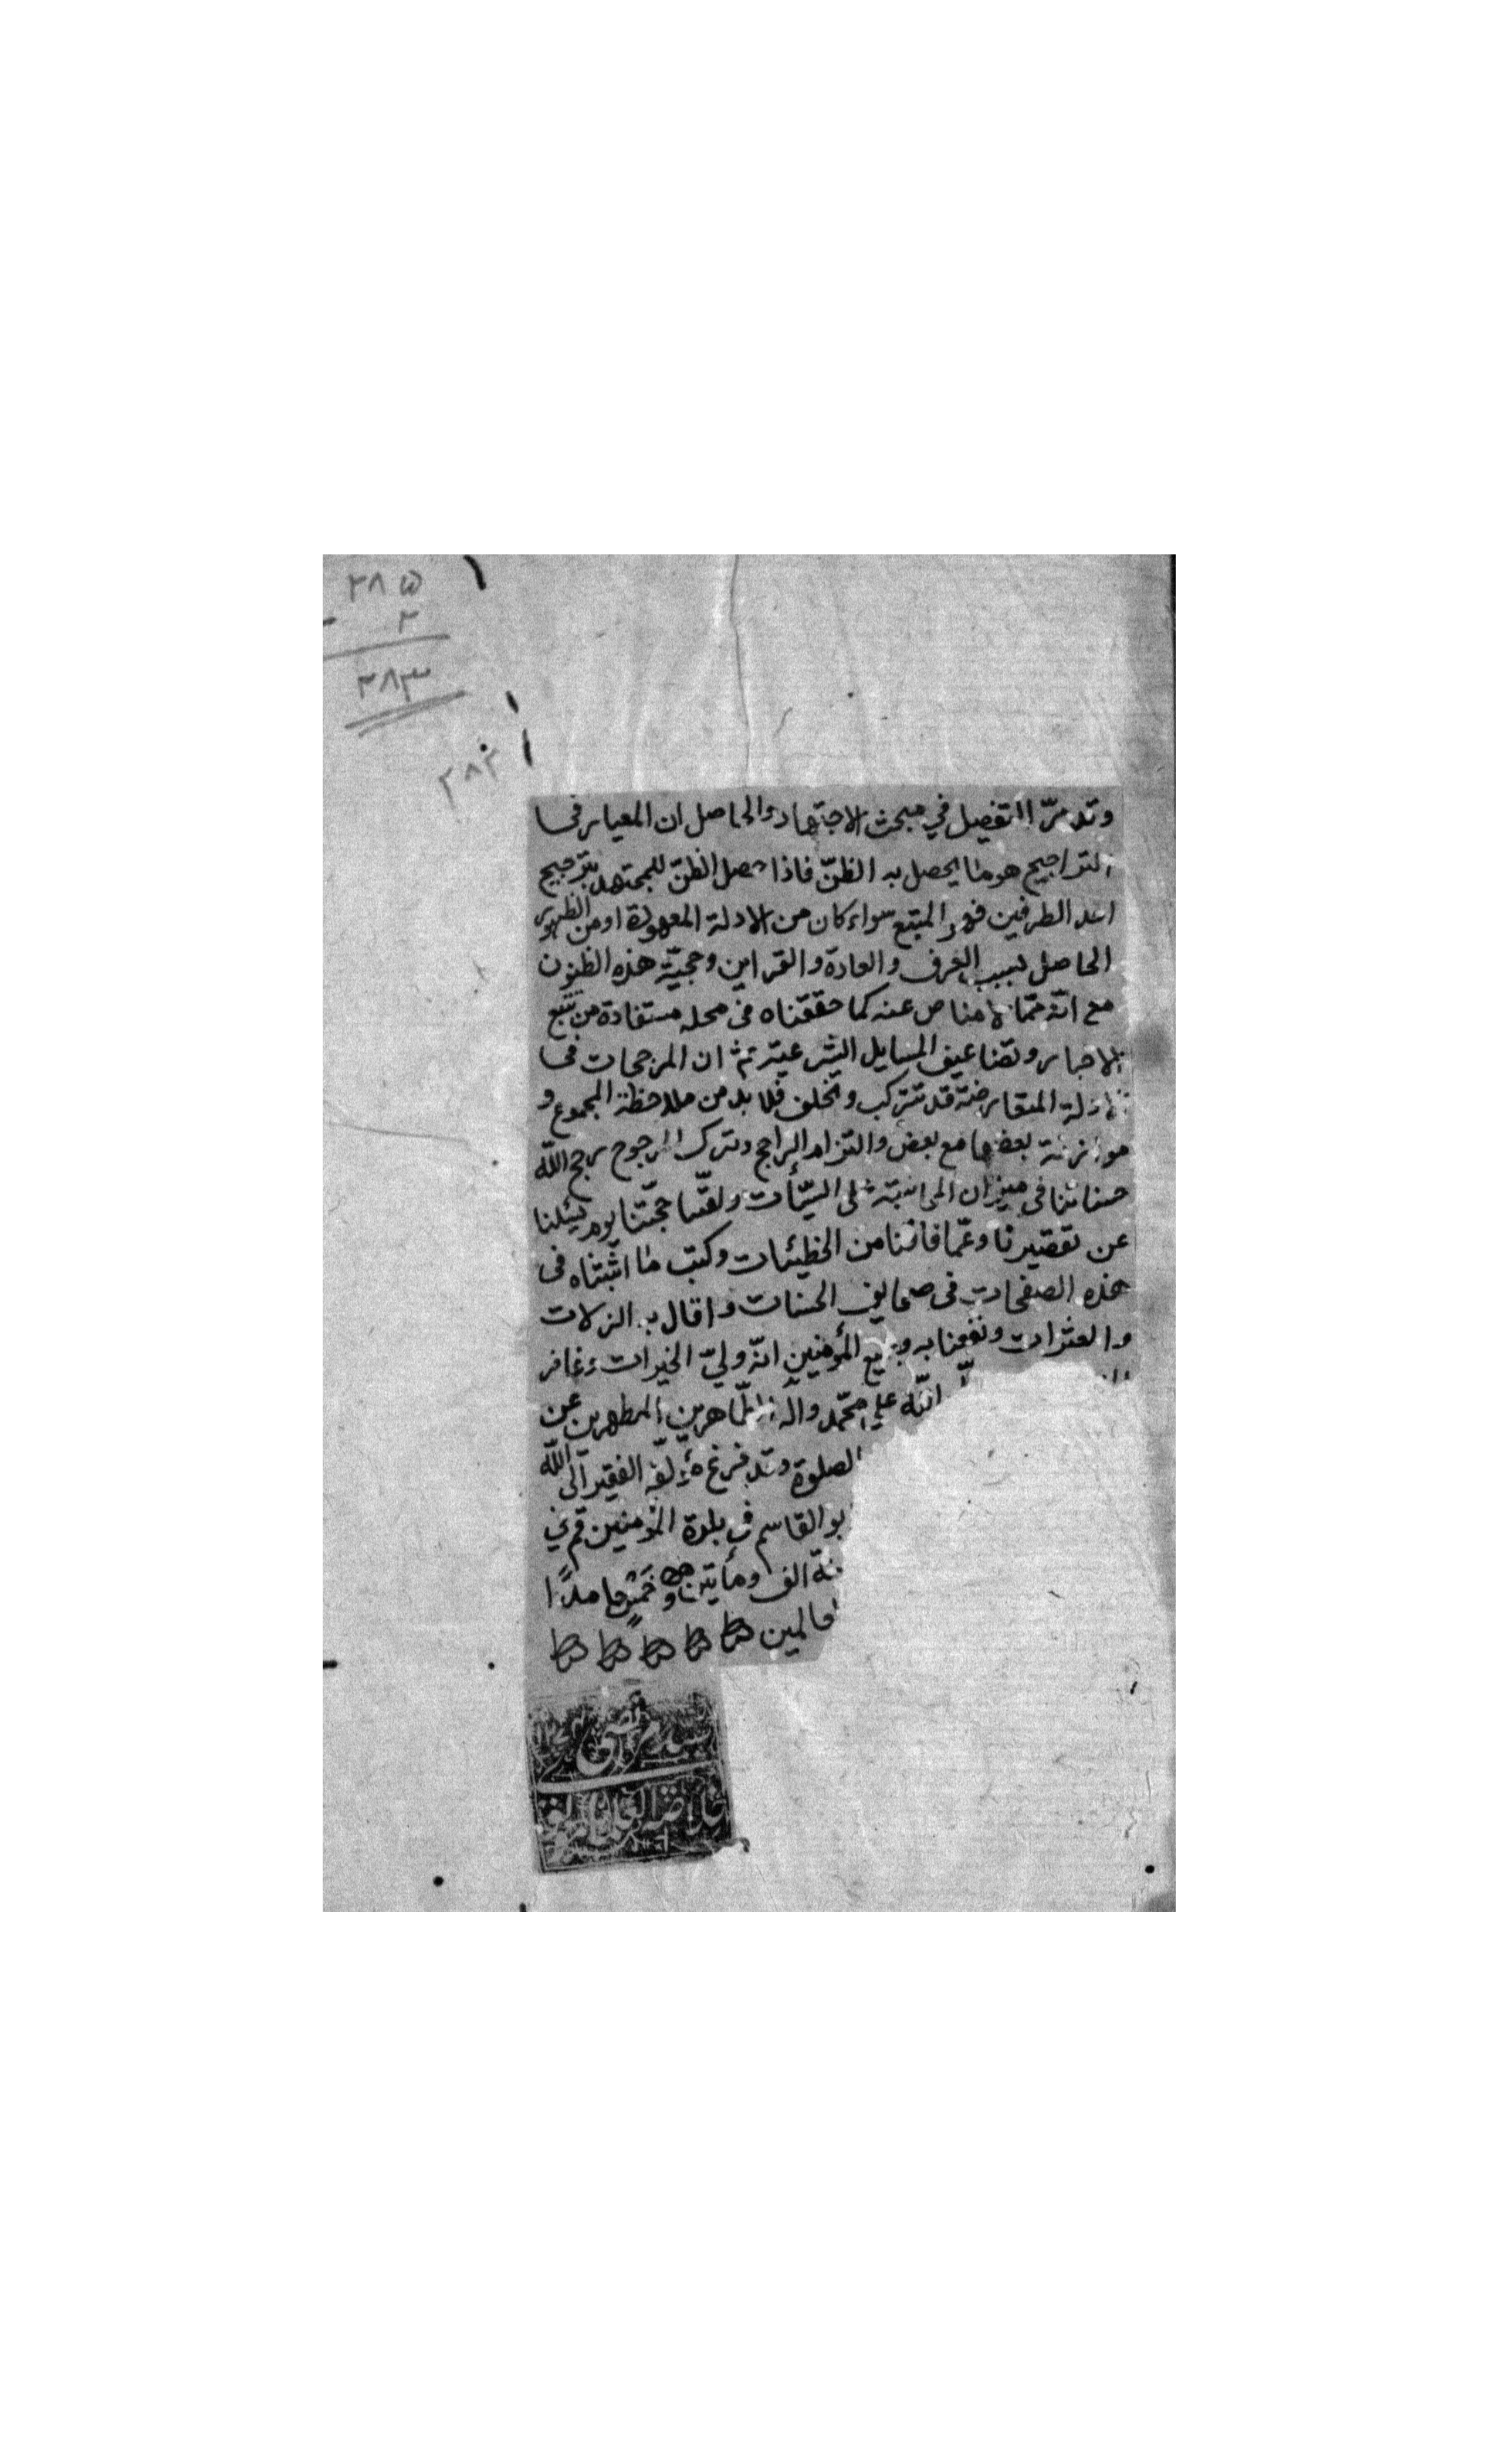 ٢٨٥
٢
٢٨٣
٢٨٢
وقد مرّ التفصيل في مبحث الاجتهاد والحاصل ان المعيار في
التراجيح هو ما يحصل به الظنّ فاذا حصل الظنّ للمجتهد بترجيح
احد الطرفين فهو المتبع سواء كان من الادلة المعهودة او من الظهور
الحاصل بسبب العرف والعادة والقراين وحجيّة هذه الظنون
مع انّه ممّا لا مناص عنه كما حققناه في محله مستفادة من تتبع
الاخبار وتضاعيف المسايل الشرعيّة ثمّ ان المرجحات في
الادلة المتعارضة قد تتركب وتختلف فلا بد من ملاحظة المجموع و
موازنة بعضها مع بعض والتزام الراجح وترك المرجوح رجح الله
حسناتنا في ميزان المحاسبة على السيّئات ولقّنا حجّتنا يوم يسئلنا
عن تقصيرنا وعمّا فاتنا من الخطيئات وكتب ما اثبتناه في
هذه الصفحات في صحايف الحسنات واقال به الزلات
والعثرات ونفعنا به وجميع المؤمنين انّه وليّ الخيرات وغافر
الله على محمّد واله الطّاهرين المطهرين عن
الصلوة وقد فرغ مؤلّفه الفقير الى الله
بو القاسم في بلدة المؤمنين قم في
نة الف ومأتين وخمس حامدًا
عالمين
سيد مرتضى
خلاصة العلما